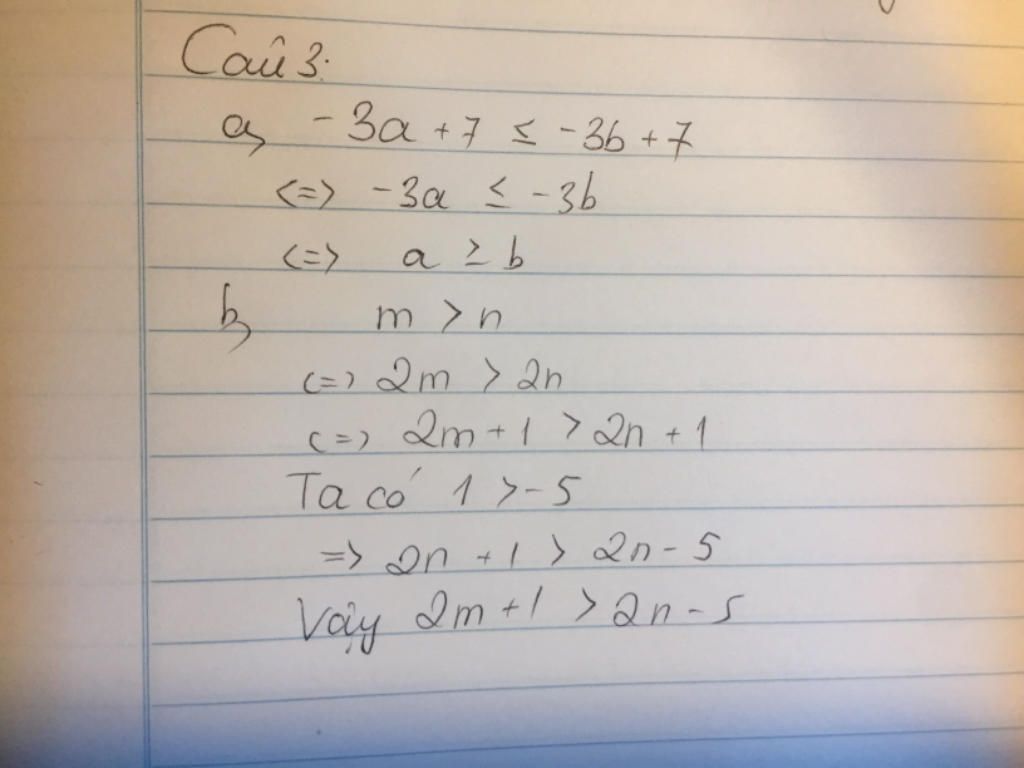 Câu 3:
a, -3a + 7 ≤ -3b + 7
<=> -3a ≤ -3b
<=> a ≥ b
b, m > n
<=> 2m > 2n
<=> 2m + 1 > 2n + 1
Ta có 1 > -5
=> 2n + 1 > 2n - 5
Vậy 2m + 1 > 2n - 5